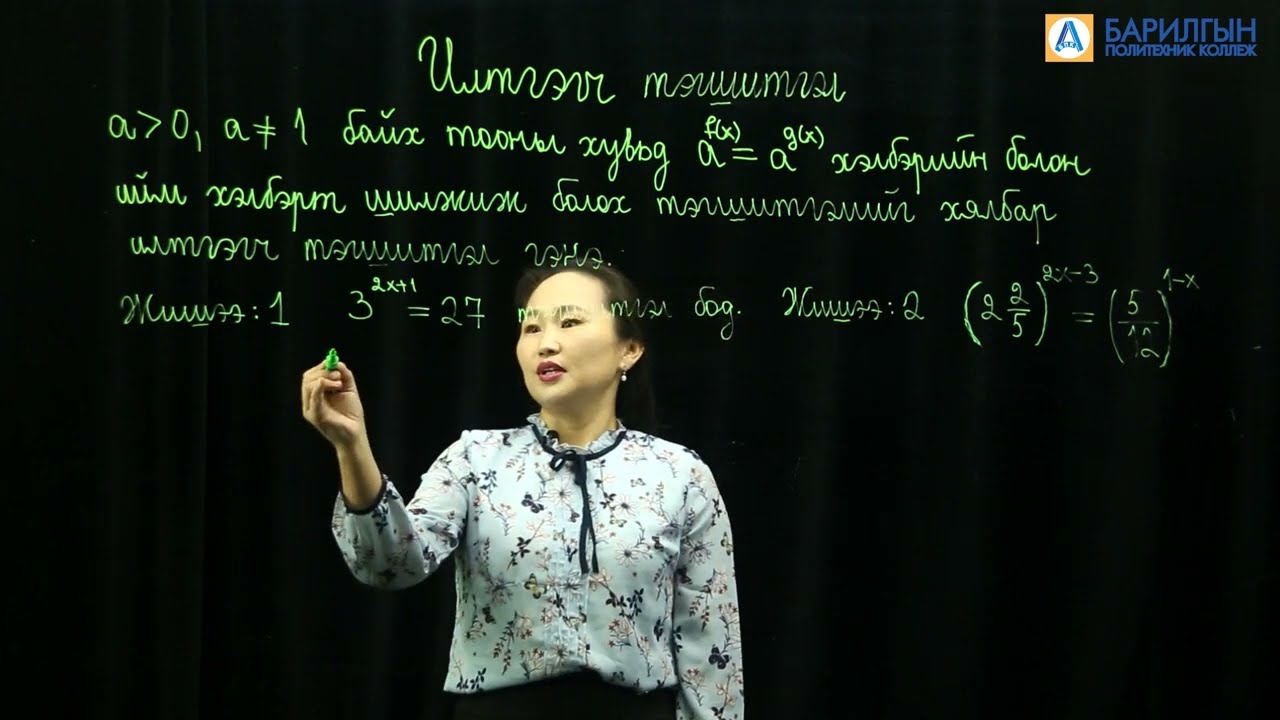 БАРИЛГЫН
ПОЛИТЕХНИК КОЛЛЕЖ
Илтгэгч тэгшитгэл
a>0, a≠1 байх тооны хувьд a^f(x) = a^g(x) хэлбэрийн болон
ийм хэлбэрт шилжиж болох тэгшитгэлийг хялбар
илтгэгч тэгшитгэл гэнэ.
Жишээ: 1 3^2x+1 = 27 тэгшитгэл бод. Жишээ: 2 (2 2/5)^2x-3 = (5/12)^1-x